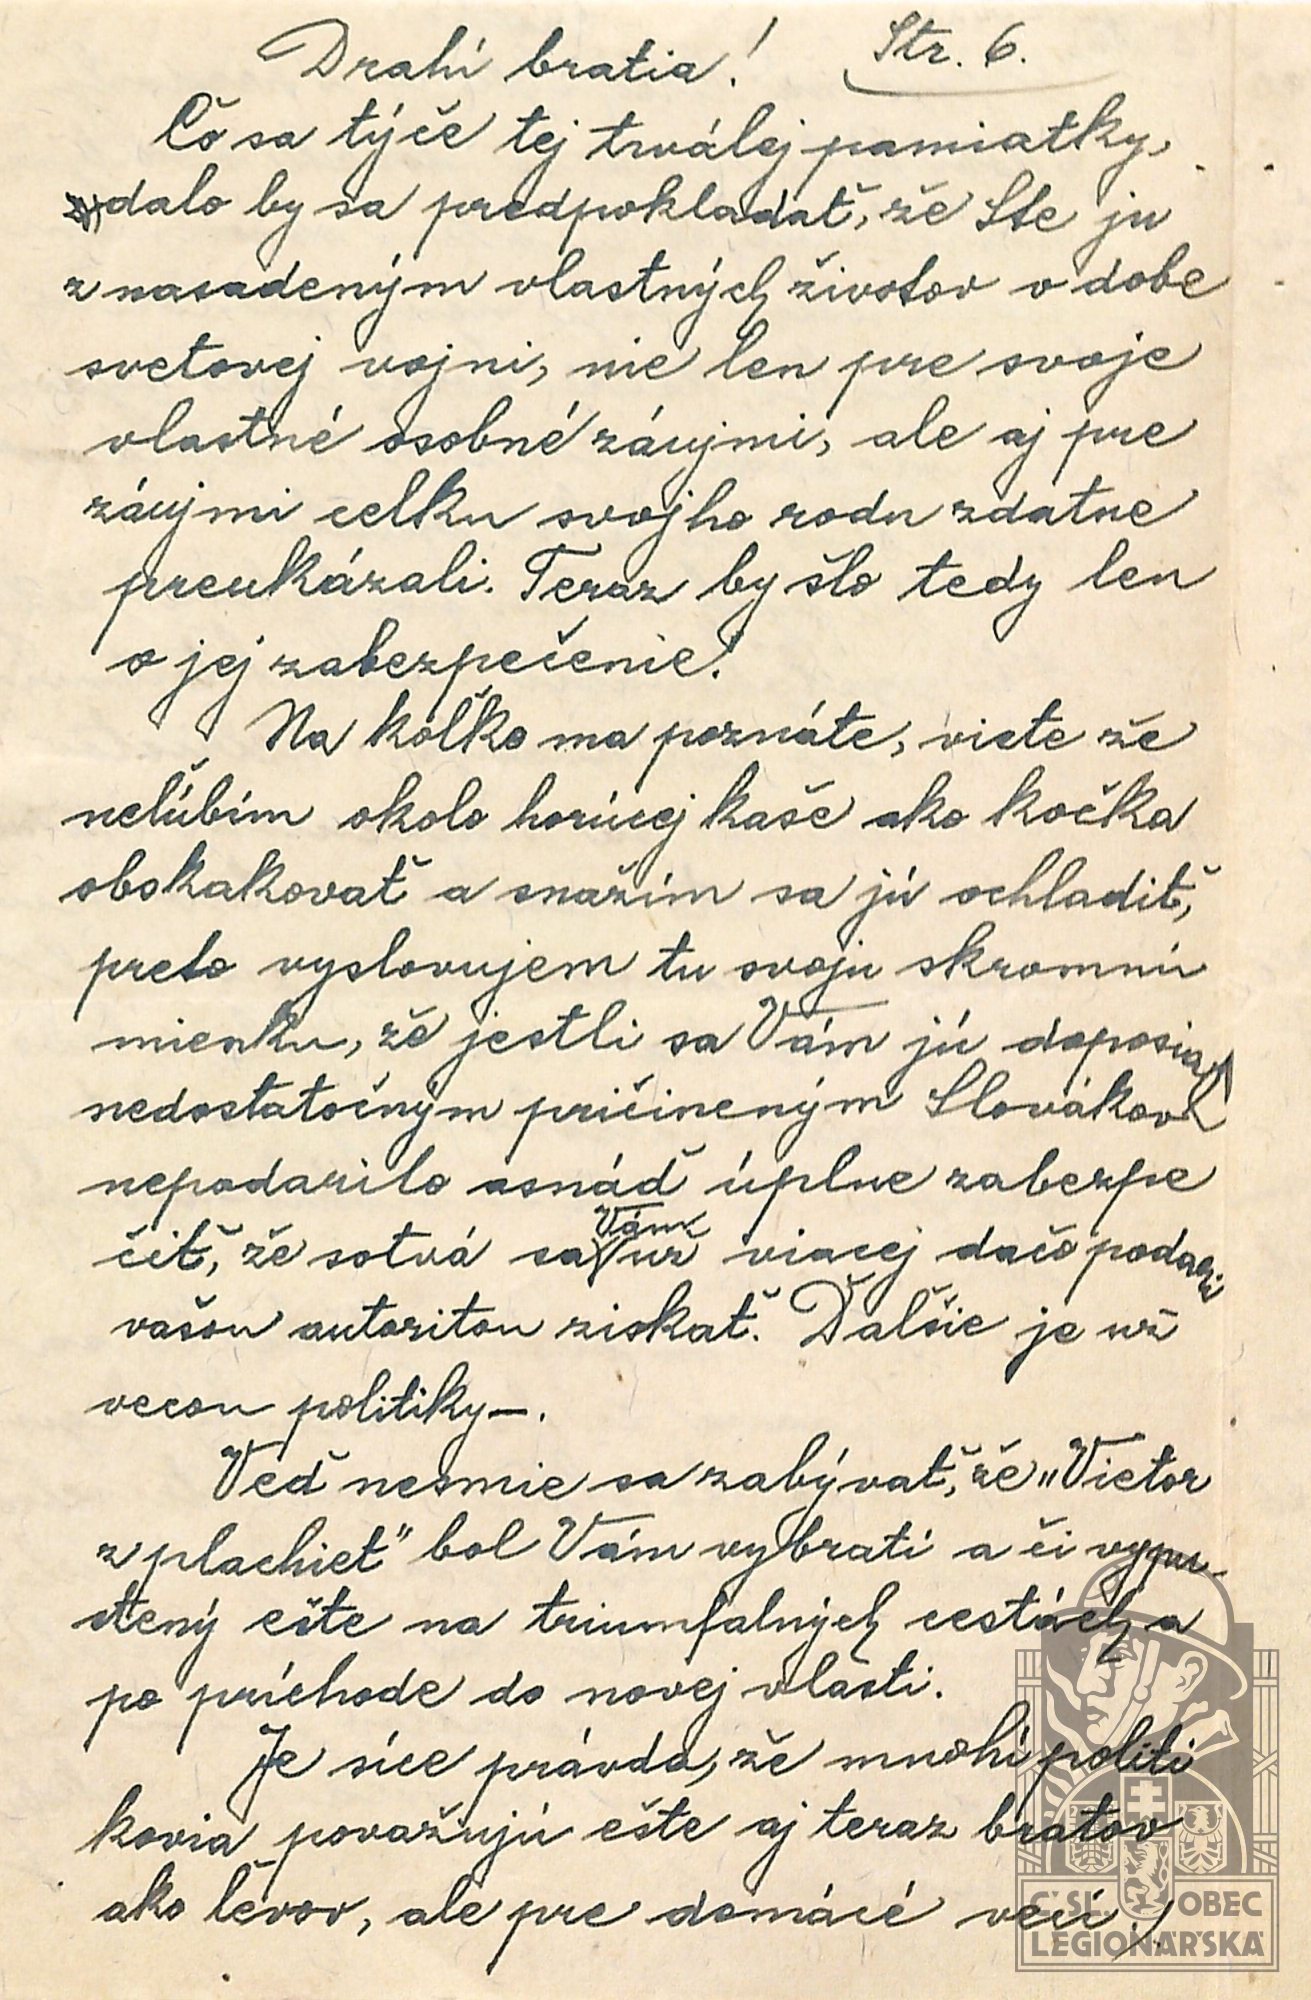 Drahí bratia! Str. 6.
Čo sa týče tej trválej pamiatky,
dalo by sa predpokladať, že Ste ju
z nasadeným vlastných životov v dobe
svetovej vojni, nie len pre svoje
vlastné osobné záujmi, ale aj pre
záujmi celku svojho rodu zdatne
preukázali. Teraz by šlo tedy len
o jej zabezpečenie!
Na koľko ma poznáte, viete že
neľúbím okolo horúcej kaše ako kočka
obskakovať a snažím sa jú ochladiť,
preto vyslovujem tu svoju skromnú
mienku, že jestli sa Vám jú doposiaľ
nedostatočným pričineným Slovákov
nepodarilo asnáď úplne zabezpe
čiť, že sotvá sa Vám už viacej dačo podarí
vašou autoritou ziskať. Ďaľšie je už
vecou politiky—.
Veď nesmie sa zabývať, že "Victor
z plachiet" bol Vám vybratí a či vypu-
stený ešte na triumfalných cestách a
po príchode do novej vlasti.
Je síce právda, že mnohí politi
kovia považujú ešte aj teraz bratov
ako ľevov, ale pre domácé vecí!
ČSL. OBEC
LEGIONÁŘSKÁ